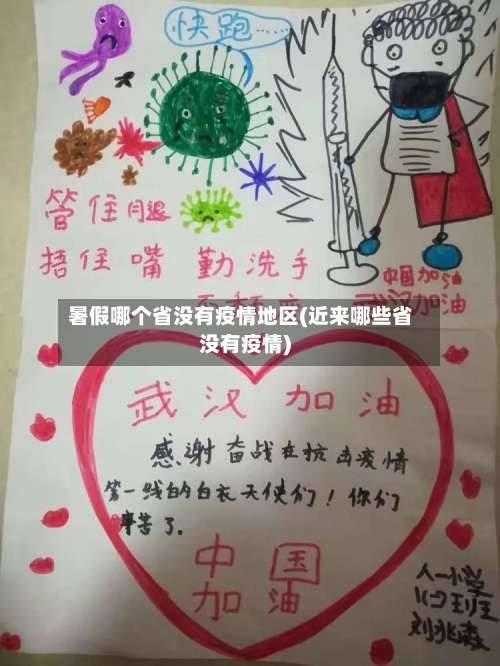 快跑……
管住腿
捂住嘴 勤洗手
中国加油
武汉加油
暑假哪个省没有疫情地区(近来哪些省
没有疫情)
武汉加油
感谢奋战在抗击疫情
第一线的白衣天使们！你们
辛苦了.
中国
加油